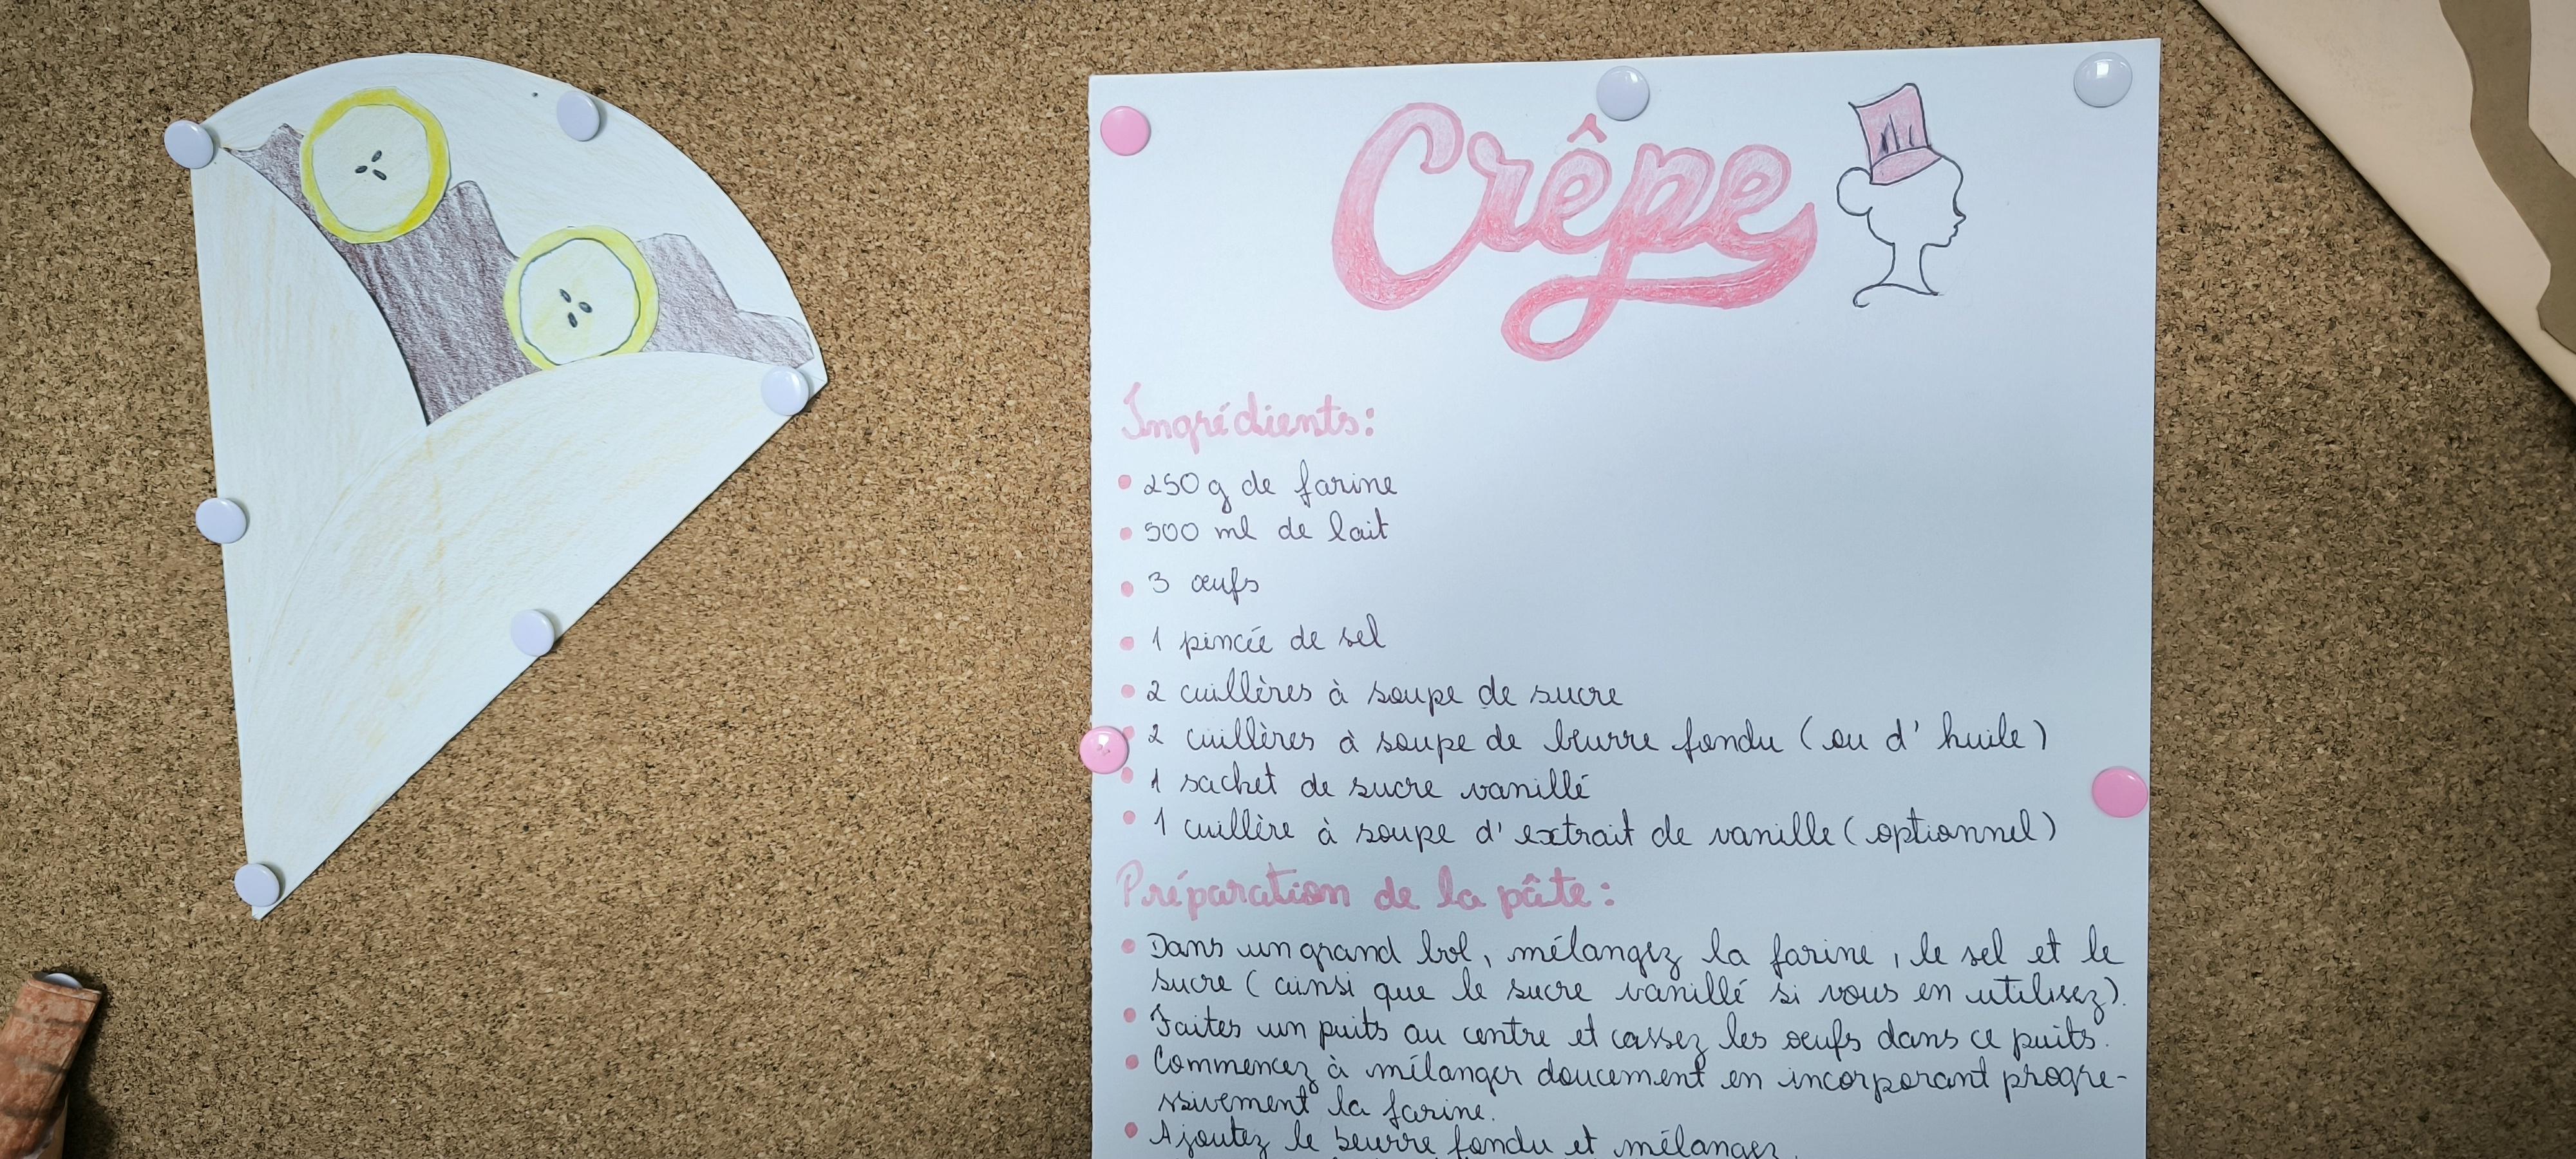 Crêpe
Ingrédients:
• 250 g de farine
• 500 ml de lait
• 3 œufs
• 1 pincée de sel
• 2 cuillères à soupe de sucre
• 2 cuillères à soupe de beurre fondu (ou d'huile)
• 1 sachet de sucre vanillé
• 1 cuillère à soupe d'extrait de vanille (optionnel)
Préparation de la pâte:
• Dans un grand bol, mélangez la farine, le sel et le
sucre (ainsi que le sucre vanillé si vous en utilisez).
• Faites un puits au centre et cassez les œufs dans ce puits.
• Commencez à mélanger doucement en incorporant progre-
ssivement la farine.
• Ajoutez le beurre fondu et mélangez.